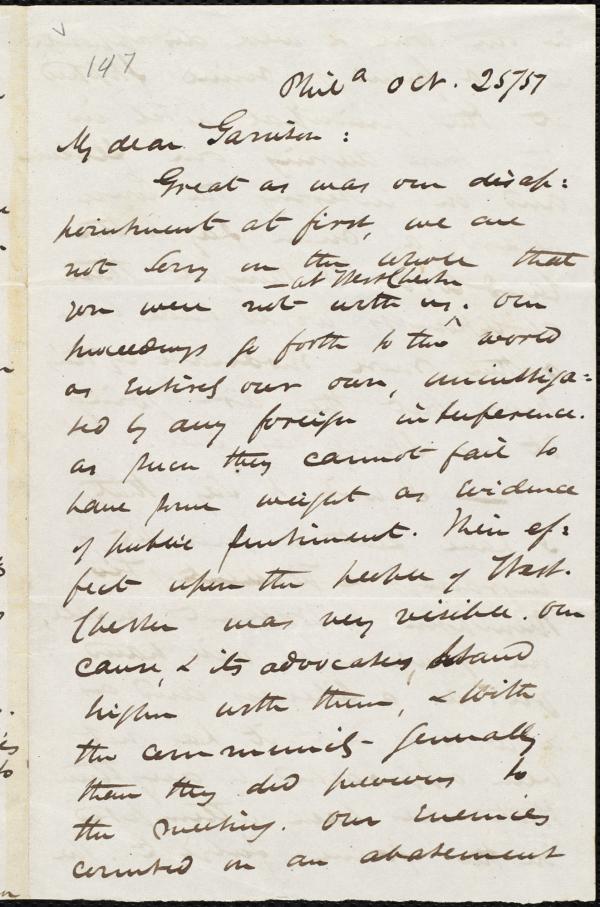 147
Phila Oct. 25/57
My dear Garrison:
Great as was our disap=
pointment at first, we are
not sorry on the whole that
– at West Chester
you were not with us. Our
proceedings go forth to the world
as entirely our own, uninstiga=
ted by any foreign interference.
As such they cannot fail to
have some weight as evidence
of public sentiment. Their ef=
fect upon the people of West.
Chester was very visible. Our
cause, & its advocates, stand
higher with them, & with
the community generally
than they did previous to
the meeting. Our enemies
counted on an abatement